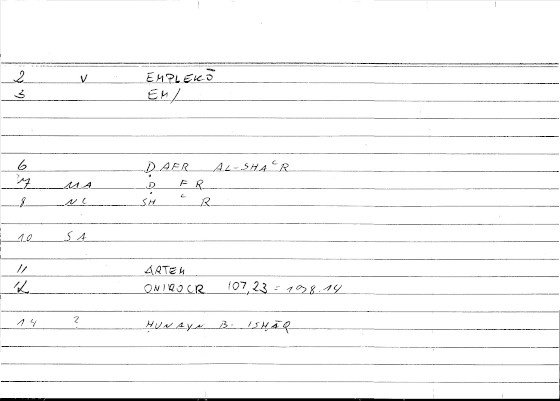 2 V EMPLEKŌ
3 EM/
6 ḌAFR AL-SHAʿR
7 MA Ḍ F R
8 NC SH ʿ R
10 SA
11 ARTEM
12 ONIROCR 107,23 = 198.14
14 ? ḤUNAYN B. ISḤĀQ